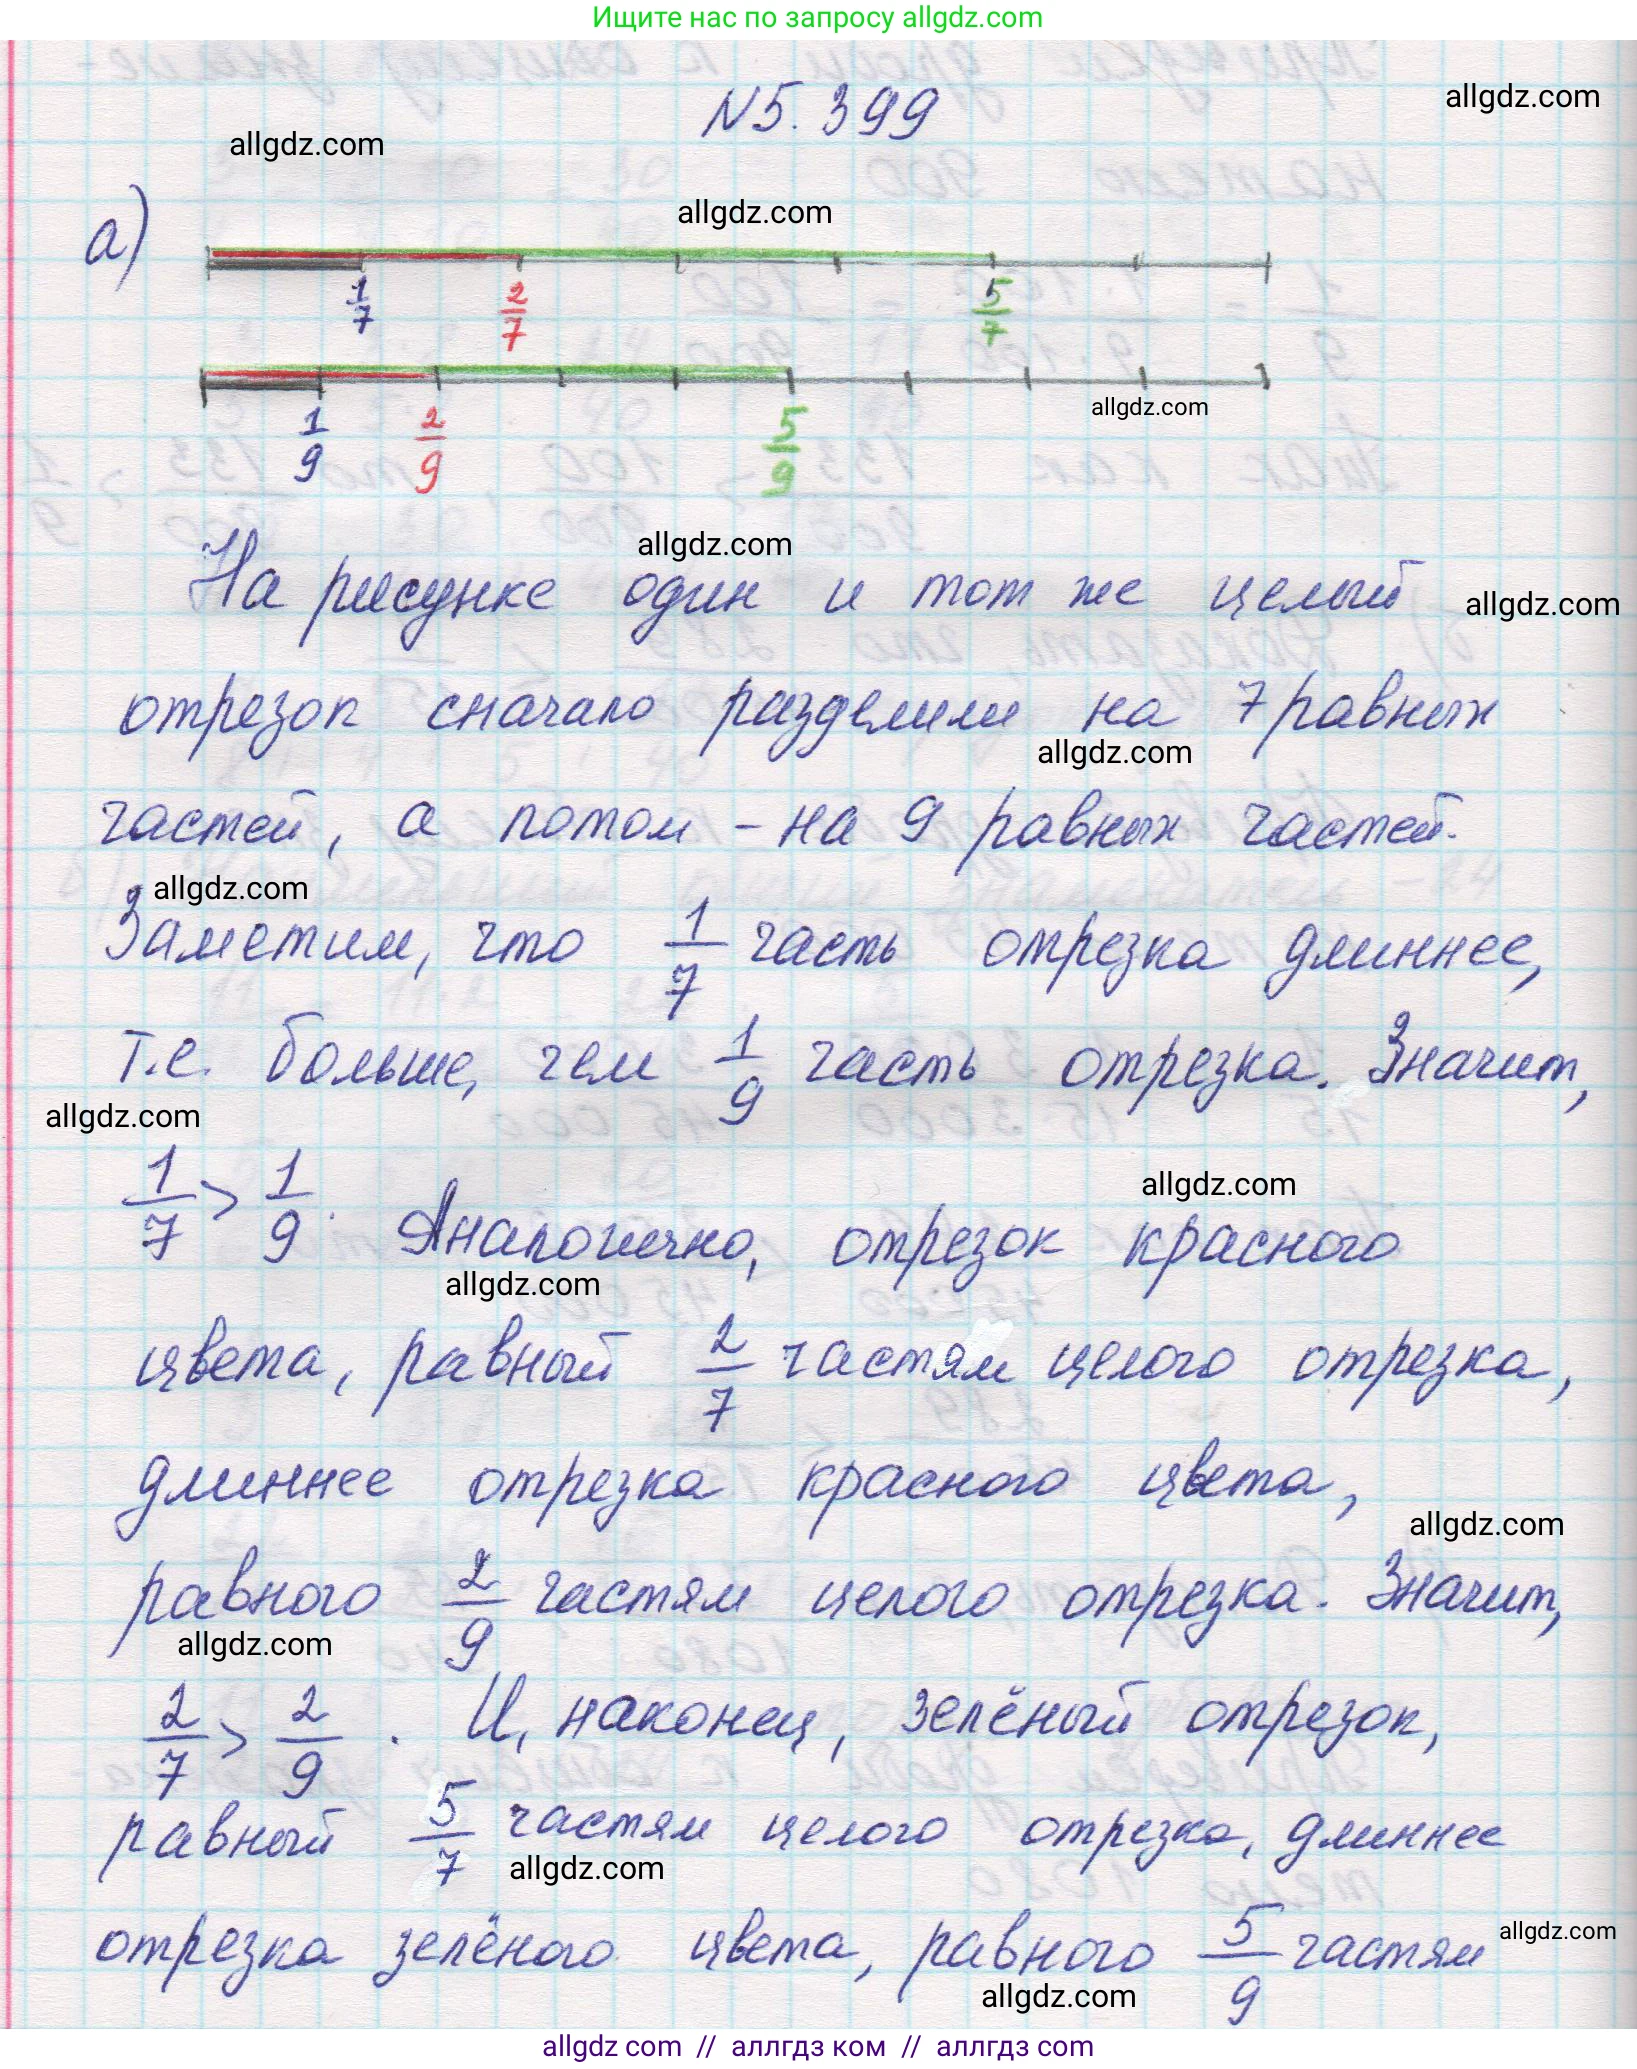 Ищите нас по запросу allgdz.com
N 5. 399
allgdz.com
allgdz.com
allgdz.com
а)
1/7 2/7 5/7
allgdz.com
1/9 2/9 5/9
allgdz.com
На рисунке один и тот же целый
allgdz.com
отрезок сначало разделили на 7 равных
allgdz.com
частей, а потом - на 9 равных частей.
allgdz.com
Заметим, что 1/7 часть отрезка длиннее,
т.е. больше, чем 1/9 часть отрезка. Значит,
allgdz.com
allgdz.com
1/7 > 1/9. Аналогично, отрезок красного
allgdz.com
цвета, равный 2/7 частям целого отрезка,
длиннее отрезка красного цвета,
allgdz.com
равного 2/9 частям целого отрезка. Значит,
allgdz.com
2/7 > 2/9. И, наконец, зелёный отрезок,
равный 5/7 частям целого отрезка, длиннее
allgdz.com
отрезка зелёного цвета, равного 5/9 частям
allgdz.com
allgdz.com
allgdz com // аллгдз ком // аллгдз.com